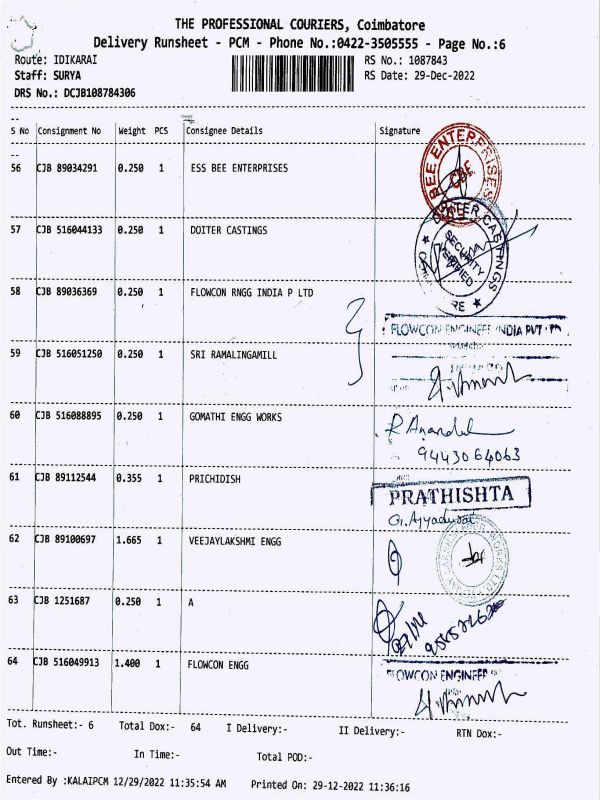 THE PROFESSIONAL COURIERS, Coimbatore
Delivery Runsheet - PCM - Phone No.:0422-3505555 - Page No.:6
Route: IDIKARAI
RS No.: 1087843
Staff: SURYA
RS Date: 29-Dec-2022
DRS No.: DCJB108784306
S No Consignment No Weight PCS Consignee Details Signature
56 CJB 89034291 0.250 1 ESS BEE ENTERPRISES
BEE ENTERPRISES
57 CJB 516044133 0.250 1 DOITER CASTINGS
CASTINGS
SECURITY
VERIFIED
58 CJB 89036369 0.250 1 FLOWCON RNGG INDIA P LTD
FLOWCON ENGINEER INDIA PVT
59 CJB 516051250 0.250 1 SRI RAMALINGAMILL
60 CJB 516088895 0.250 1 GOMATHI ENGG WORKS
9443064063
61 CJB 89112544 0.355 1 PRICHIDISH
PRATHISHTA
62 CJB 89100697 1.665 1 VEEJAYLAKSHMI ENGG
63 CJB 1251687 0.250 1 A
64 CJB 516049913 1.400 1 FLOWCON ENGG
FLOWCON ENGINEER
Tot. Runsheet:- 6 Total Dox:- 64 I Delivery:- II Delivery:- RTN Dox:-
Out Time:- In Time:- Total POD:-
Entered By :KALAIPCM 12/29/2022 11:35:54 AM Printed On: 29-12-2022 11:36:16